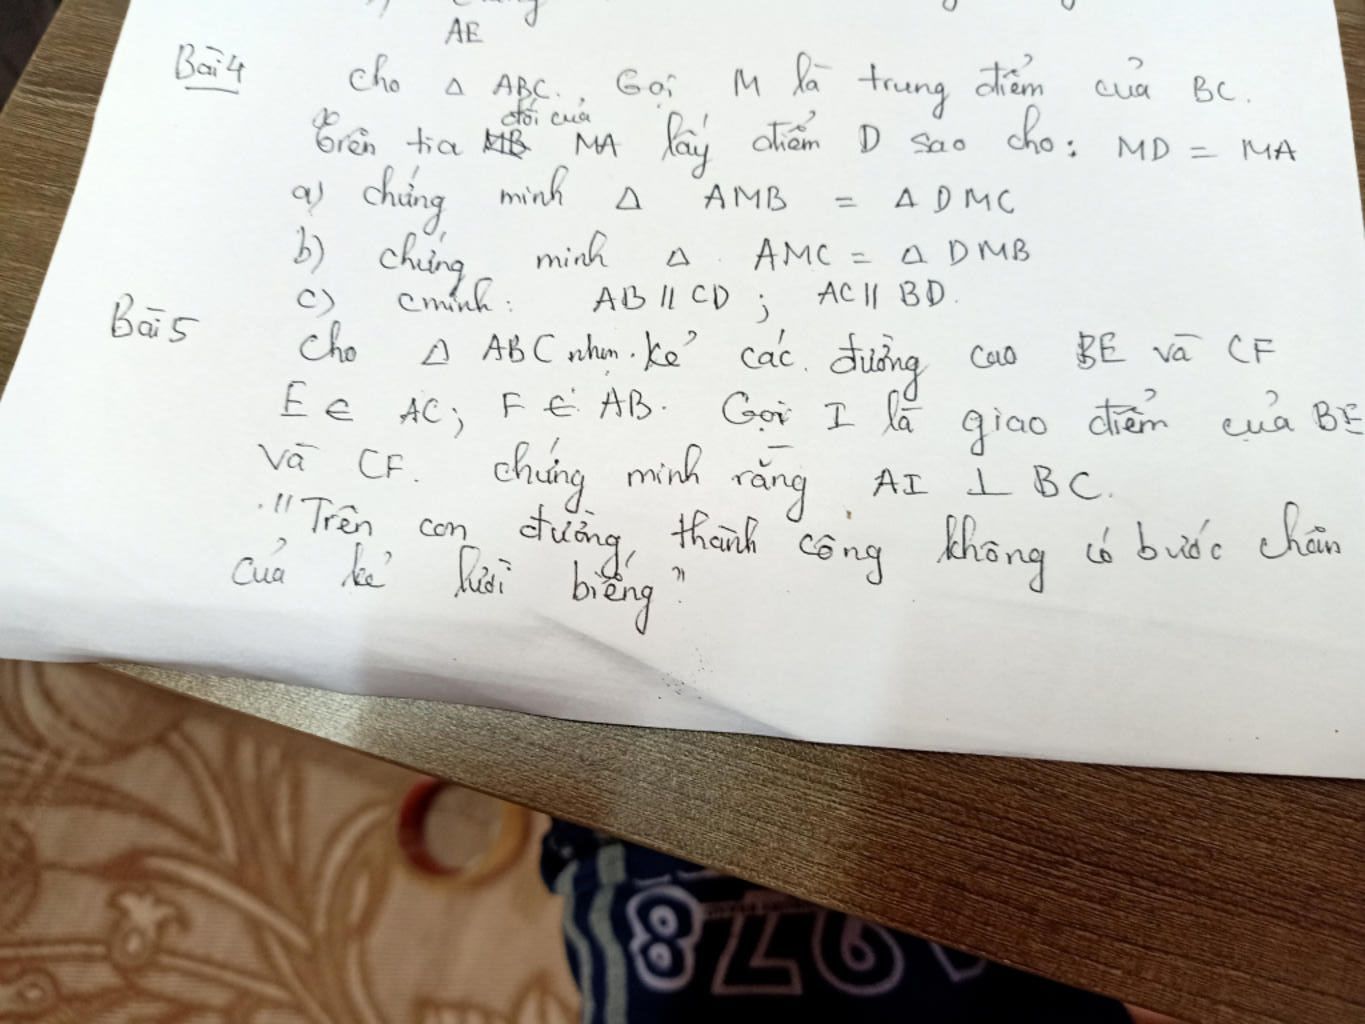 AE
Bài 4 Cho Δ ABC. Gọi M là trung điểm của BC.
đối của
trên tia MB MA lấy điểm D sao cho: MD = MA
a) chứng minh Δ AMB = Δ DMC
b) chứng minh Δ AMC = Δ DMB
c) cminh: AB // CD ; AC // BD.
Bài 5 Cho Δ ABC nhọn. kẻ các đường cao BE và CF
E ∈ AC; F ∈ AB. Gọi I là giao điểm của BE
và CF. chứng minh rằng AI ⊥ BC.
"Trên con đường thành công không có bước chân
của kẻ lười biếng"
87